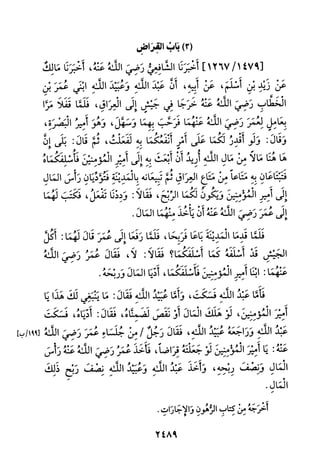 (٣) بَابُ القِرَاضِ
[١٢٦٧/١٤٧٩] أَخْبَرَنَا الشَّافِعِيُّ رَضِيَ اللهُ عَنْهُ، أَخْبَرَنَا مَالِكٌ
عَنْ زَيْدِ بْنِ أَسْلَمَ، عَنْ أَبِيهِ، أَنَّ عَبْدَ اللهِ وَعُبَيْدَ اللهِ ابْنَي عُمَرَ بْنِ
الْخَطَّابِ رَضِيَ اللهُ عَنْهُ خَرَجَا فِي جَيْشٍ إِلَى الْعِرَاقِ، فَلَمَّا قَفَلَا مَرَّا
بِعَامِلٍ لِعُمَرَ رَضِيَ اللهُ عَنْهُمَا فَرَحَّبَ بِهِمَا وَسَهَّلَ، وَهُوَ أَمِيرُ الْبَصْرَةِ،
وَقَالَ: وَلَو أَقْدِرُ لَكُمَا عَلَى أَمْرٍ أَنْفَعُكُمَا بِهِ لَفَعَلْتُ، ثُمَّ قَالَ: بَلَى إِنَّ
هَا هُنَا مَالاً مِنْ مَالِ اللهِ أُرِيدُ أَنْ أَبْعَثَ بِهِ إِلَى أَمِيرِ الْمُؤْمِنِيْنَ فَأُسْلِفُكُمَاهُ
فَتَبْتَاعَانِ بِهِ مَتَاعاً مِنْ مَتَاعِ الْعِرَاقِ ثُمَّ تَبِيعَانِهِ بِالْمَدِيْنَةِ فَتُؤَدِّيَانِ رَأْسَ الْمَالِ
إِلَى أَمِيرِ الْمُؤْمِنِيْنَ وَيَكُونُ لَكُمَا الرِّبْحُ، فَقَالَا: وَدِدْنَا تَفْعَلُ، فَكَتَبَ لَهُمَا
إِلَى عُمَرَ رَضِيَ اللهُ عَنْهُ أَنْ يَأْخُذَ مِنْهُمَا الْمَالَ.
فَلَمَّا قَدِمَا الْمَدِيْنَةَ بَاعَا فَرَبِحَا، فَلَمَّا رَفَعَا إِلَى عُمَرَ قَالَ لَهُمَا: أَكُلَّ
الْجَيْشِ قَدْ أَسْلَفَهُ كَمَا أَسْلَفَكُمَا؟ فَقَالَا: لَا، فَقَالَ عُمَرُ رَضِيَ اللهُ
عَنْهُمَا: ابْنَا أَمِيرِ الْمُؤْمِنِينَ فَأَسْلَفَكُمَا، أَدِّيَا الْمَالَ وَرِبْحَهُ.
فَأَمَّا عَبْدُ اللهِ فَسَكَتَ، وَأَمَّا عُبَيْدُ اللهِ فَقَالَ: مَا يَنْبَغِي لَكَ هَذَا يَا
أَمِيْرَ الْمُؤْمِنِينَ، لَوْ هَلَكَ الْمَالَ أَوْ نَقَصَ لَضَمِنَّاهُ، فَقَالَ: أَدِّيَاهُ، فَسَكَتَ
عَبْدُ اللهِ وَرَاجَعَهُ عُبَيْدُ اللهِ، فَقَالَ رَجُلٌ / مِنْ جُلَسَاءِ عُمَرَ رَضِيَ اللهُ [١٩٩/ب]
عَنْهُ: يَا أَمِيرَ الْمُؤْمِنِينَ لَوْ جَعَلْتَهُ قِرَاضاً، فَأَخَذَ عُمَرُ رَضِيَ اللهُ عَنْهُ رَأْسَ
الْمَالِ وَنِصْفَ رِبْحِهِ، وَأَخَذَ عَبْدُ اللهِ وَعُبَيْدُ اللهِ نِصْفَ رِبْحِ ذَلِكَ
الْمَالِ.
أَخْرَجَهُ مِنْ كِتَابِ الرُّهُونِ وَالإِجَارَاتِ.
٢٤٨٩